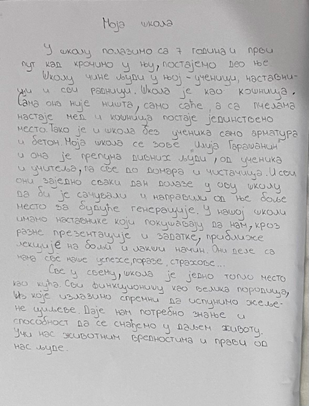 Моја школа
У школу полазимо са 7 година и први
пут кад крочимо у њу, постајемо део ње
Школу чине људи у њој - ученици, наставни-
ци и сви радници. Школа је као кошница.
Сама она није ништа, само саће, а са пчелама
настаје мед и кошница постаје јединствено
место. Тако је и школа без ученика само арматура
и бетон. Моја школа се зове "Илија Гарашанин"
и она је препуна дивних људи, од ученика
и учитеља, па све до домара и чистачица. И сви
они заједно сваки дан долазе у ову школу
да би је сачували и направили од ње боље
место за будуће генерације. У нашој школи
имамо наставнике који покушавају да нам, кроз
разне презентације и задатке, приближе
лекције на бољи и лакши начин. Они деле са
нама све наше успехе, поразе, страхове...
Све у свему, школа је једно топло место
као кућа. Сви функционишу као велика породица,
из које излазимо спремни да испунимо жеље-
не циљеве. Даје нам потребно знање и
способност да се снађемо у даљем животу.
Учи нас животним вредностима и прави од
нас људе.